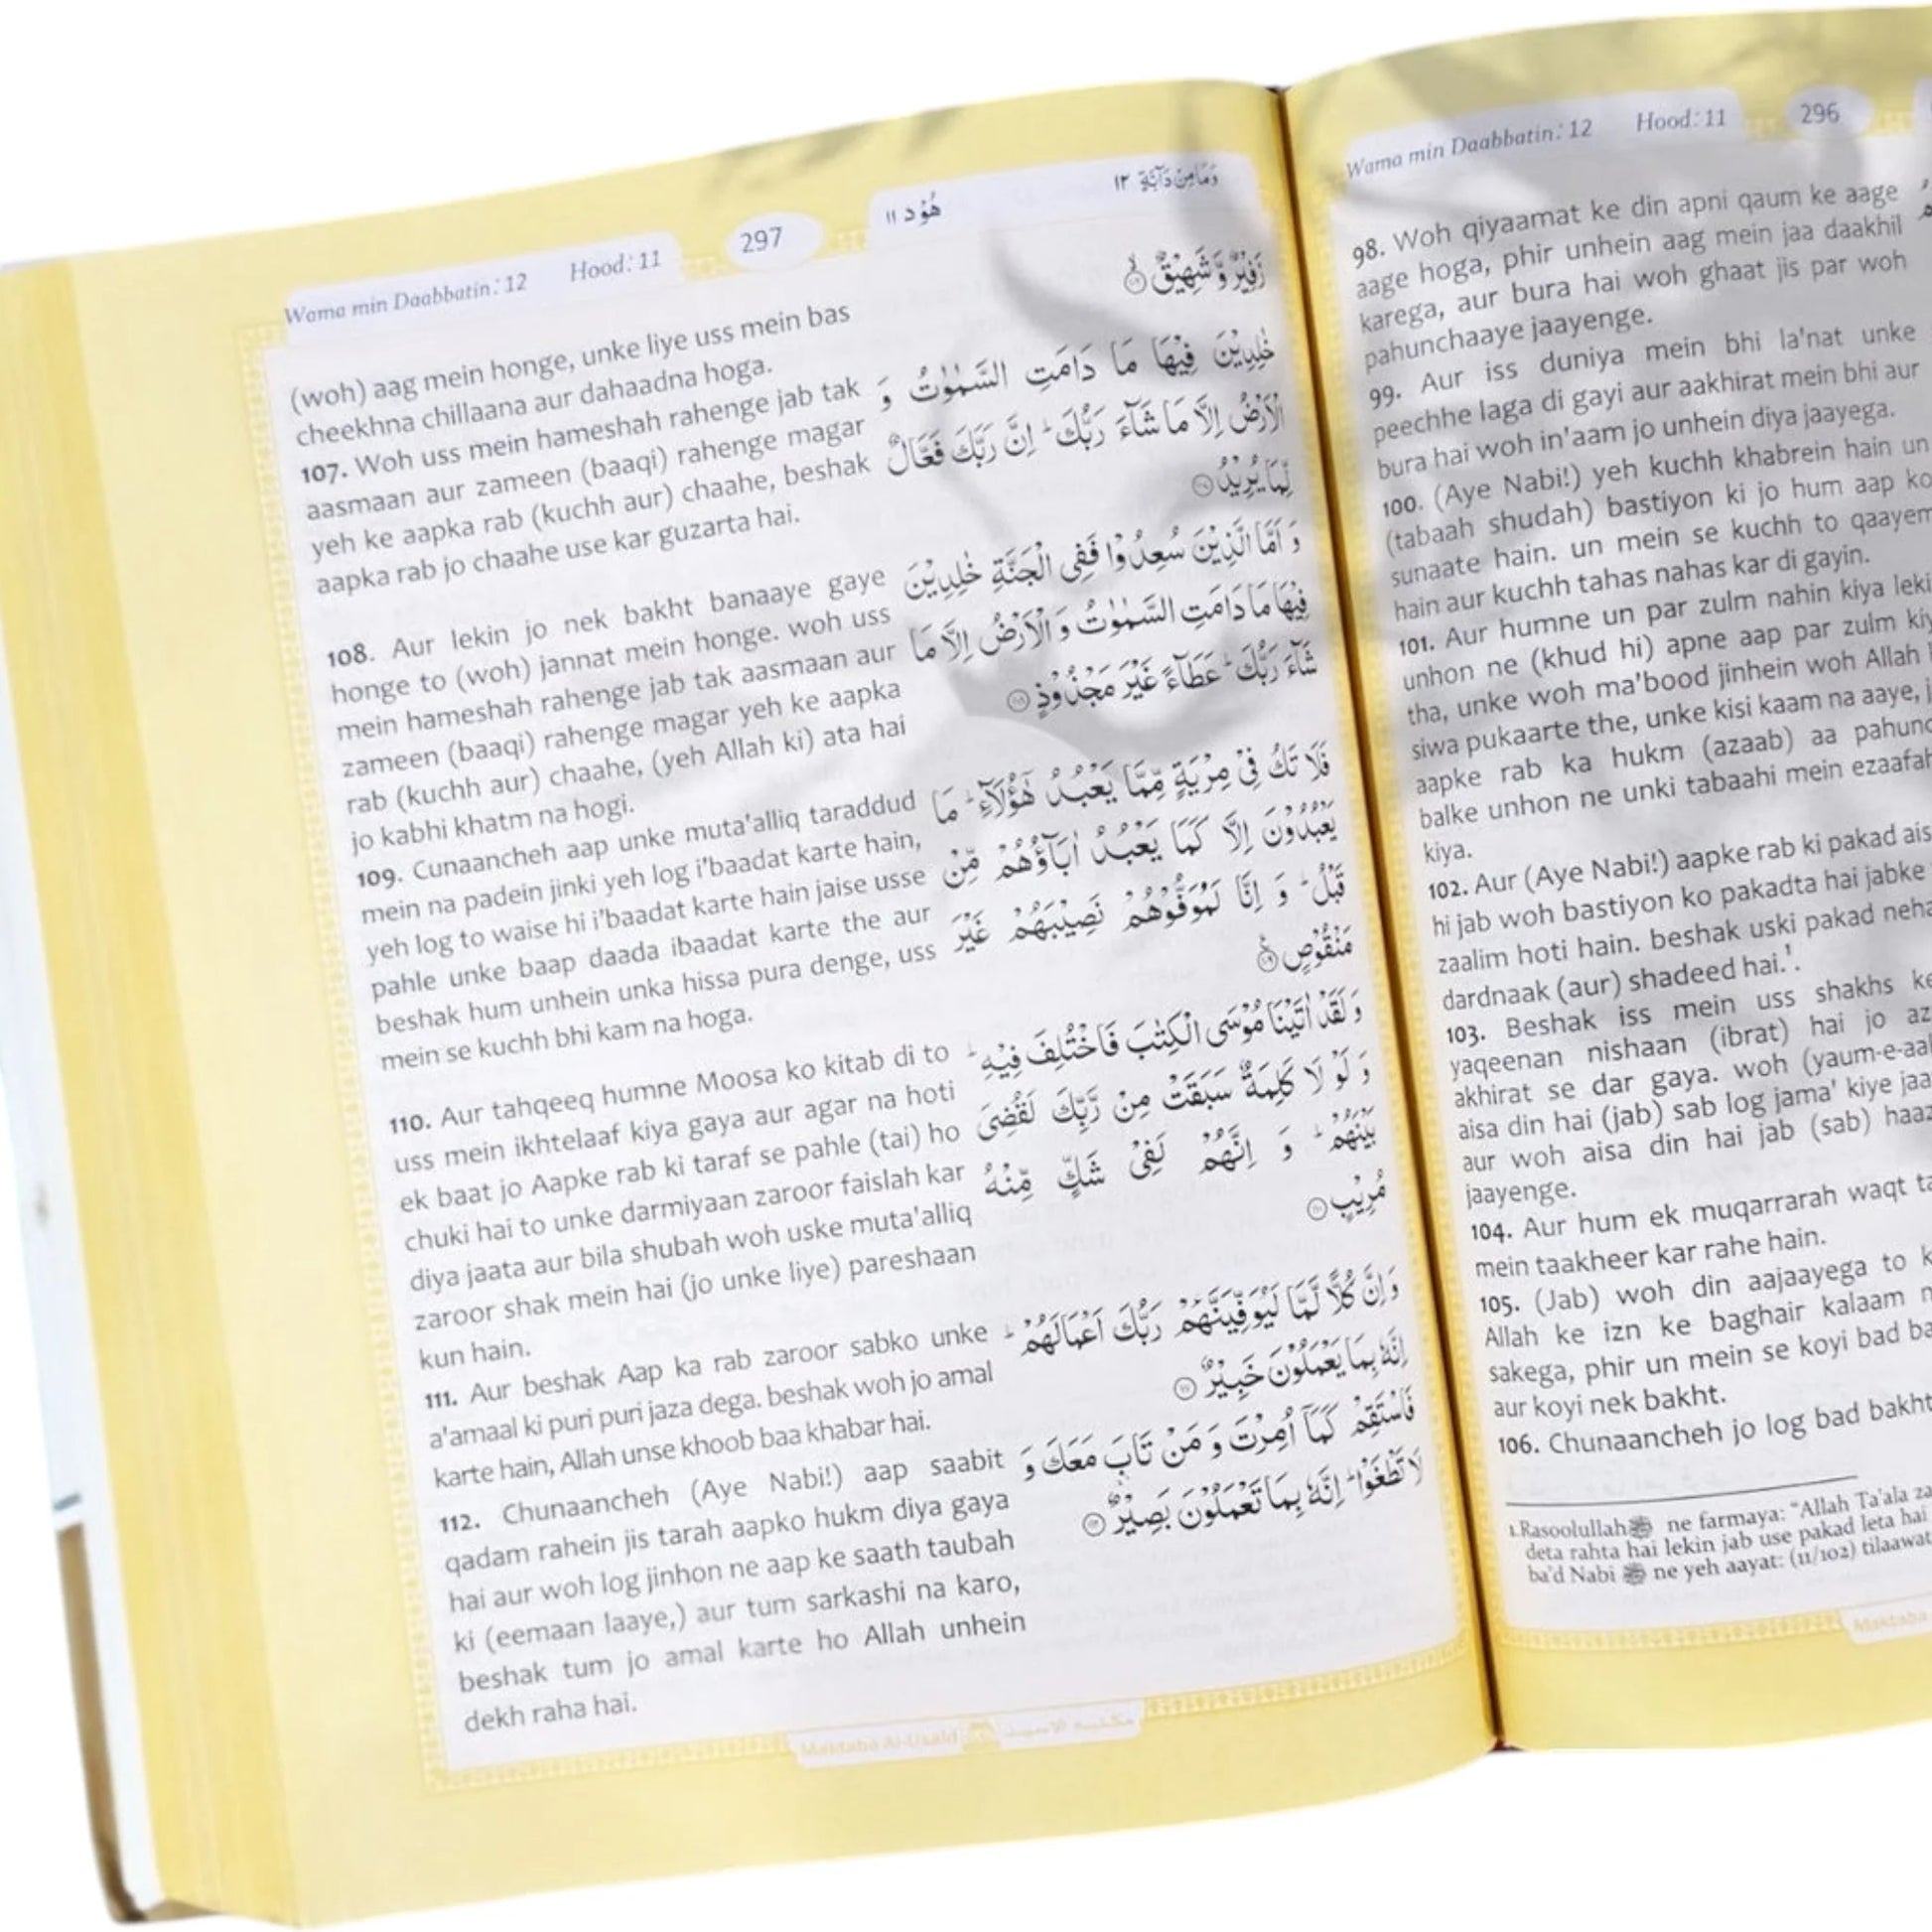 Wama min Daabbatin: 12 Hood: 11 297 هُوْد ١١ وَمَا مِنْ دَآبَّةٍ ١٢
(woh) aag mein honge, unke liye uss mein bas
cheekhna chillaana aur dahaadna hoga.
107. Woh uss mein hameshah rahenge jab tak
aasmaan aur zameen (baaqi) rahenge magar
yeh ke aapka rab (kuchh aur) chaahe, beshak
aapka rab jo chaahe use kar guzarta hai.
108. Aur lekin jo nek bakht banaaye gaye
honge to (woh) jannat mein honge. woh uss
mein hameshah rahenge jab tak aasmaan aur
zameen (baaqi) rahenge magar yeh ke aapka
rab (kuchh aur) chaahe, (yeh Allah ki) ata hai
jo kabhi khatm na hogi.
109. Cunaancheh aap unke muta'alliq taraddud
mein na padein jinki yeh log i'baadat karte hain,
yeh log to waise hi i'baadat karte hain jaise usse
pahle unke baap daada ibaadat karte the aur
beshak hum unhein unka hissa pura denge, uss
mein se kuchh bhi kam na hoga.
110. Aur tahqeeq humne Moosa ko kitab di to
uss mein ikhtelaaf kiya gaya aur agar na hoti
ek baat jo Aapke rab ki taraf se pahle (tai) ho
chuki hai to unke darmiyaan zaroor faislah kar
diya jaata aur bila shubah woh uske muta'alliq
zaroor shak mein hai (jo unke liye) pareshaan
kun hain.
111. Aur beshak Aap ka rab zaroor sabko unke
a'amaal ki puri puri jaza dega. beshak woh jo amal
karte hain, Allah unse khoob baa khabar hai.
112. Chunaancheh (Aye Nabi!) aap saabit
qadam rahein jis tarah aapko hukm diya gaya
hai aur woh log jinhon ne aap ke saath taubah
ki (eemaan laaye,) aur tum sarkashi na karo,
beshak tum jo amal karte ho Allah unhein
dekh raha hai.
زَفِيْرٌ وَّ شَهِيْقٌ ۙ﴿١٠٦﴾
خٰلِدِيْنَ فِيْهَا مَا دَامَتِ السَّمٰوٰتُ وَ
الْاَرْضُ اِلَّا مَا شَآءَ رَبُّكَ ؕ اِنَّ رَبَّكَ فَعَّالٌ
لِّمَا يُرِيْدُ ﴿١٠٧﴾
وَ اَمَّا الَّذِيْنَ سُعِدُوْا فَفِى الْجَنَّةِ خٰلِدِيْنَ
فِيْهَا مَا دَامَتِ السَّمٰوٰتُ وَ الْاَرْضُ اِلَّا مَا
شَآءَ رَبُّكَ ؕ عَطَآءً غَيْرَ مَجْذُوْذٍ ﴿١٠٨﴾
فَلَا تَكُ فِىْ مِرْيَةٍ مِّمَّا يَعْبُدُ هٰٓؤُلَآءِ ؕ مَا
يَعْبُدُوْنَ اِلَّا كَمَا يَعْبُدُ اٰبَآؤُهُمْ مِّنْ
قَبْلُ ؕ وَ اِنَّا لَمُوَفُّوْهُمْ نَصِيْبَهُمْ غَيْرَ
مَنْقُوْصٍ ﴿١٠٩﴾
وَ لَقَدْ اٰتَيْنَا مُوْسَى الْكِتٰبَ فَاخْتُلِفَ فِيْهِ ؕ
وَ لَوْ لَا كَلِمَةٌ سَبَقَتْ مِنْ رَّبِّكَ لَقُضِىَ
بَيْنَهُمْ ؕ وَ اِنَّهُمْ لَفِىْ شَكٍّ مِّنْهُ
مُرِيْبٍ ﴿١١٠﴾
وَ اِنَّ كُلًّا لَّمَّا لَيُوَفِّيَنَّهُمْ رَبُّكَ اَعْمَالَهُمْ ؕ
اِنَّهٗ بِمَا يَعْمَلُوْنَ خَبِيْرٌ ﴿١١١﴾
فَاسْتَقِمْ كَمَآ اُمِرْتَ وَ مَنْ تَابَ مَعَكَ وَ
لَا تَطْغَوْا ؕ اِنَّهٗ بِمَا تَعْمَلُوْنَ بَصِيْرٌ ﴿١١٢﴾
Maktaba Al-Usaid
Wama min Daabbatin: 12 Hood: 11 296
98. Woh qiyaamat ke din apni qaum ke aage
aage hoga, phir unhein aag mein jaa daakhil
karega, aur bura hai woh ghaat jis par woh
pahunchaaye jaayenge.
99. Aur iss duniya mein bhi la'nat unke
peechhe laga di gayi aur aakhirat mein bhi aur
bura hai woh in'aam jo unhein diya jaayega.
100. (Aye Nabi!) yeh kuchh khabrein hain un
(tabaah shudah) bastiyon ki jo hum aap ko
sunaate hain. un mein se kuchh to qaayem
hain aur kuchh tahas nahas kar di gayin.
101. Aur humne un par zulm nahin kiya
unhon ne (khud hi) apne aap par zulm
tha, unke woh ma'bood jinhein woh Allah
siwa pukaarte the, unke kisi kaam na aaye,
aapke rab ka hukm (azaab) aa
balke unhon ne unki tabaahi mein
kiya.
102. Aur (Aye Nabi!) aapke rab ki pakad
hi jab woh bastiyon ko pakadta hai jabke
zaalim hoti hain. beshak uski pakad
dardnaak (aur) shadeed hai.¹.
103. Beshak iss mein uss shakhs
yaqeenan nishaan (ibrat) hai jo
akhirat se dar gaya. woh
aisa din hai (jab) sab log jama' kiye
aur woh aisa din hai jab (sab)
jaayenge.
104. Aur hum ek muqarrarah waqt
mein taakheer kar rahe hain.
105. (Jab) woh din aajaayega to
Allah ke izn ke baghair kalaam
sakega, phir un mein se koyi bad
aur koyi nek bakht.
106. Chunaancheh jo log bad bakht
1.Rasoolullah ﷺ ne farmaya: "Allah Ta'ala
deta rahta hai lekin jab use pakad leta hai
ba'd Nabi ﷺ ne yeh aayat: (11/102)